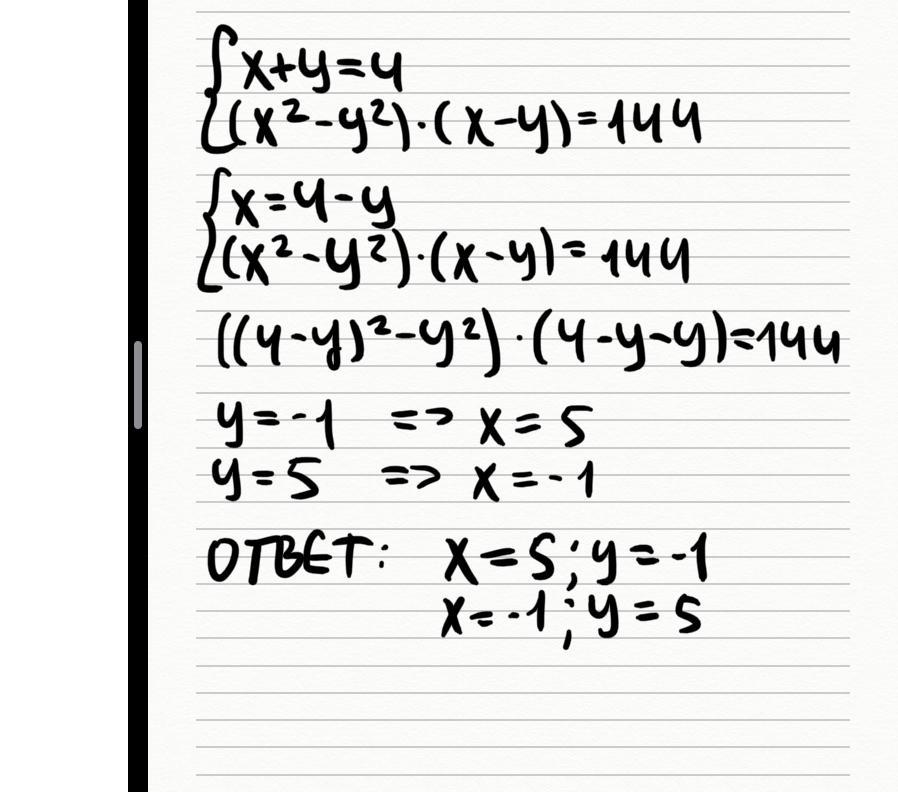 {x+y=4
{(x²-y²)·(x-y)=144
{x=4-y
{(x²-y²)·(x-y)=144
((4-y)²-y²)·(4-y-y)=144
y=-1 => x=5
y=5 => x=-1
ОТВЕТ: x=5; y=-1
x=-1; y=5